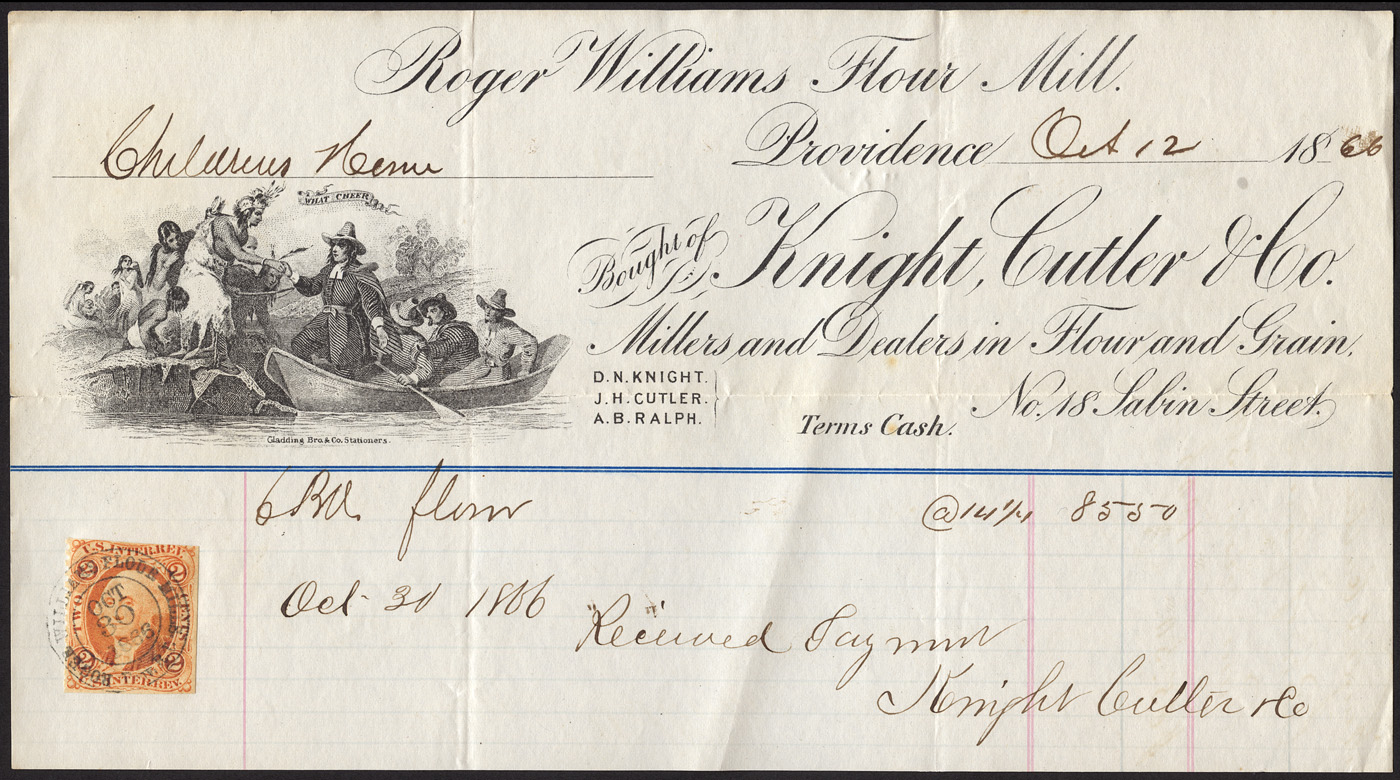 Roger Williams Flour Mill.
Childrens Home
Providence Oct 12 1866
WHAT CHEER
Bought of Knight, Cutler & Co.
Millers and Dealers in Flour and Grain,
D. N. KNIGHT.
J. H. CUTLER.
A. B. RALPH.
No. 18 Sabin Street.
Terms Cash.
Gladding Bro. & Co. Stationers.
6 Bbl flour @ 14 1/4 85 50
U.S. INTER. REV.
2 2
TWO CENTS
FLOUR
OCT
30
1866
2 2
U.S. INTER. REV.
Oct 30 1866
Received Payment
Knight Cutler & Co